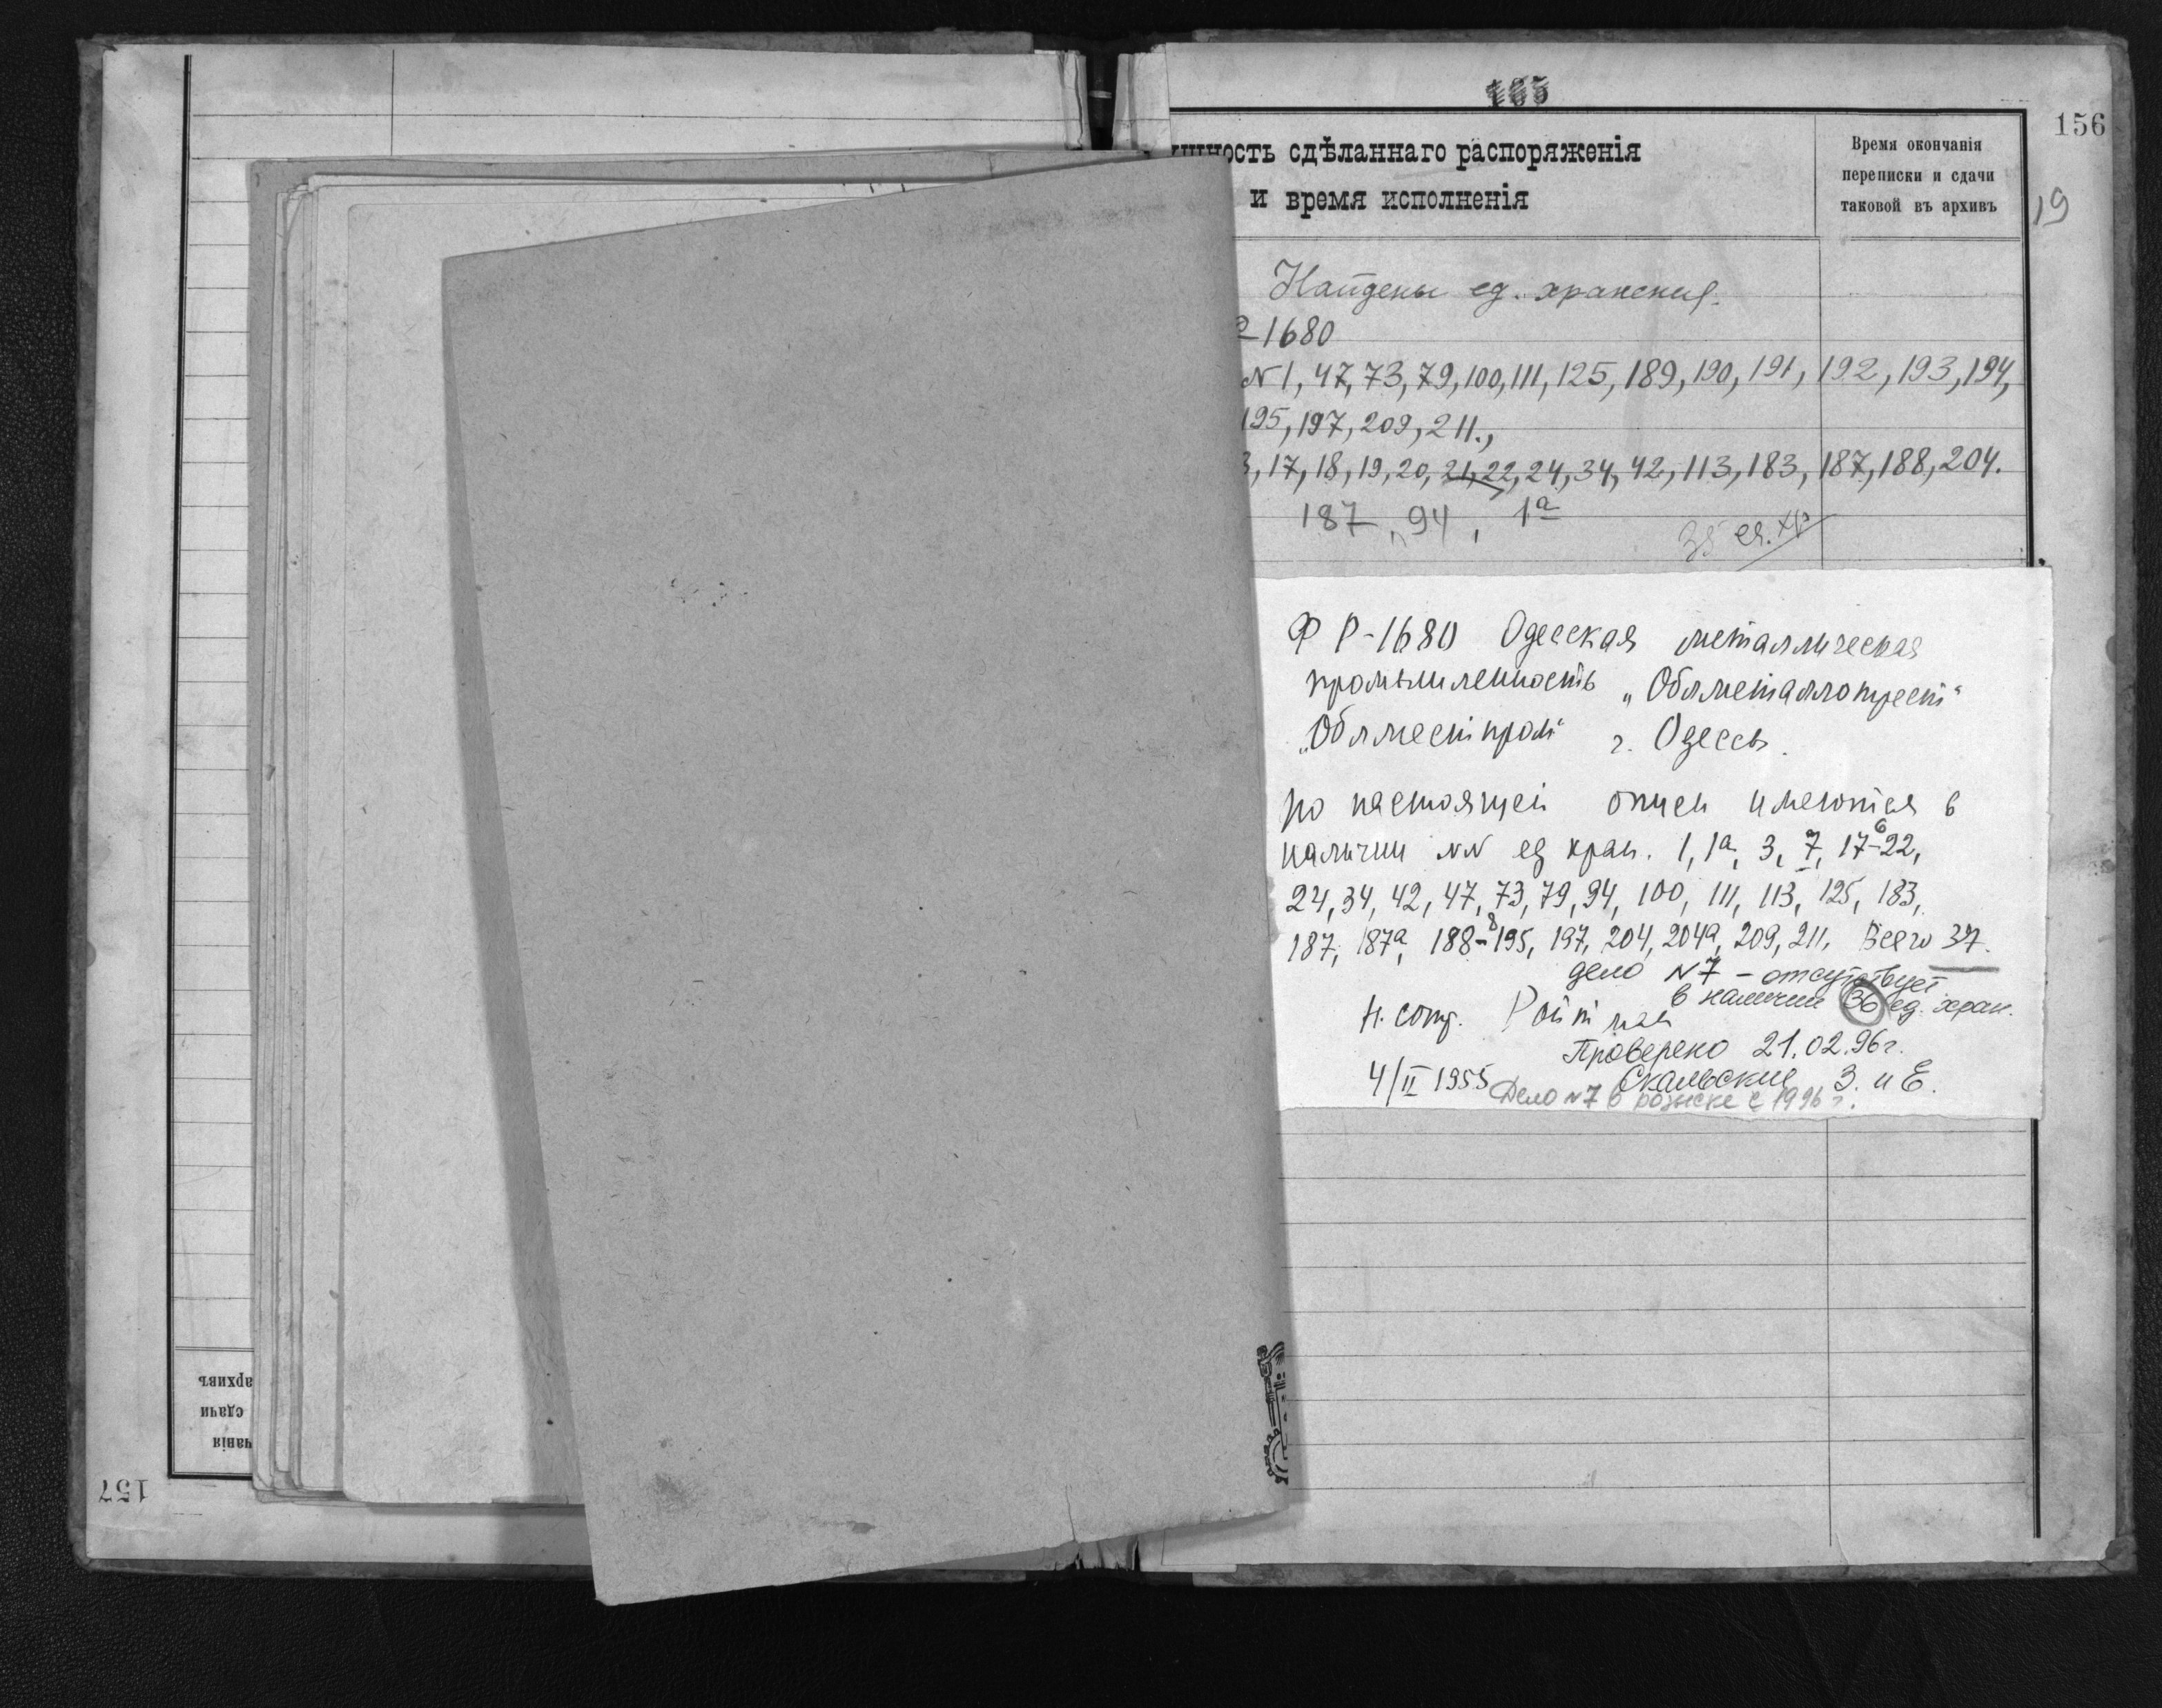 165
156
19
сдѣланнаго распоряженія
и время исполненія
Время окончанія
переписки и сдачи
таковой въ архивъ
Найдены ед. хранения.
1680
N 1, 47, 73, 79, 100, 111, 125, 189, 190, 191, 192, 193, 194,
195, 197, 209, 211.,
3, 17, 18, 19, 20, 21, 22, 24, 34, 42, 113, 183, 187, 188, 204.
187, 94, 1а
35 ед. хр
Ф Р-1680 Одесская металлическая
промышленность „Облметаллотрест“
„Облместпром“ г. Одессы.
По настоящей описи имеются в
наличии NN ед хран. 1, 1а, 3, 7, 17-22,
6
24, 34, 42, 47, 73, 79, 94, 100, 111, 113, 125, 183,
187, 187а, 188-195, 197, 204, 204а, 209, 211, Всего 37.
8
дело N7 - отсутствует
в наличии 36 ед. хран.
Н. сотр. Ройтман
Проверено 21.02.96г.
4/II 1955 Скальские З. и Е.
Дело N7 в розыске с 1996 г.
архивъ
сдачи
чанія
157